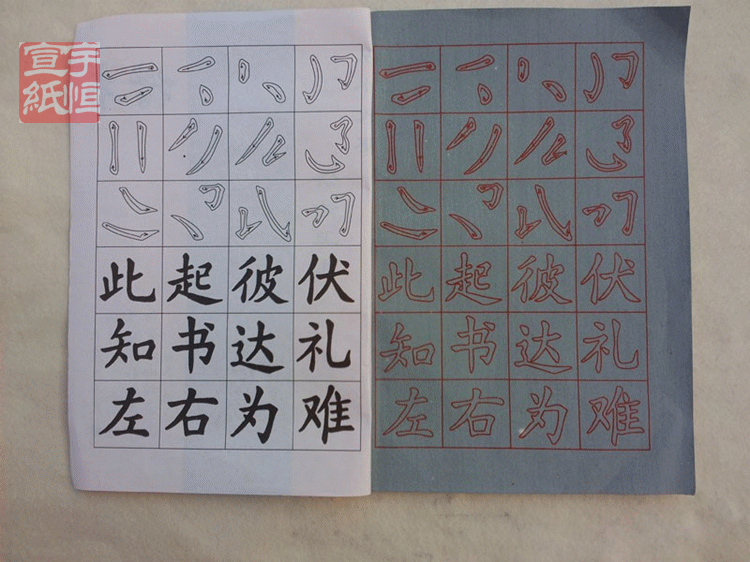 宇恒
宣紙
此起彼伏
知书达礼
左右为难
此起彼伏
知书达礼
左右为难